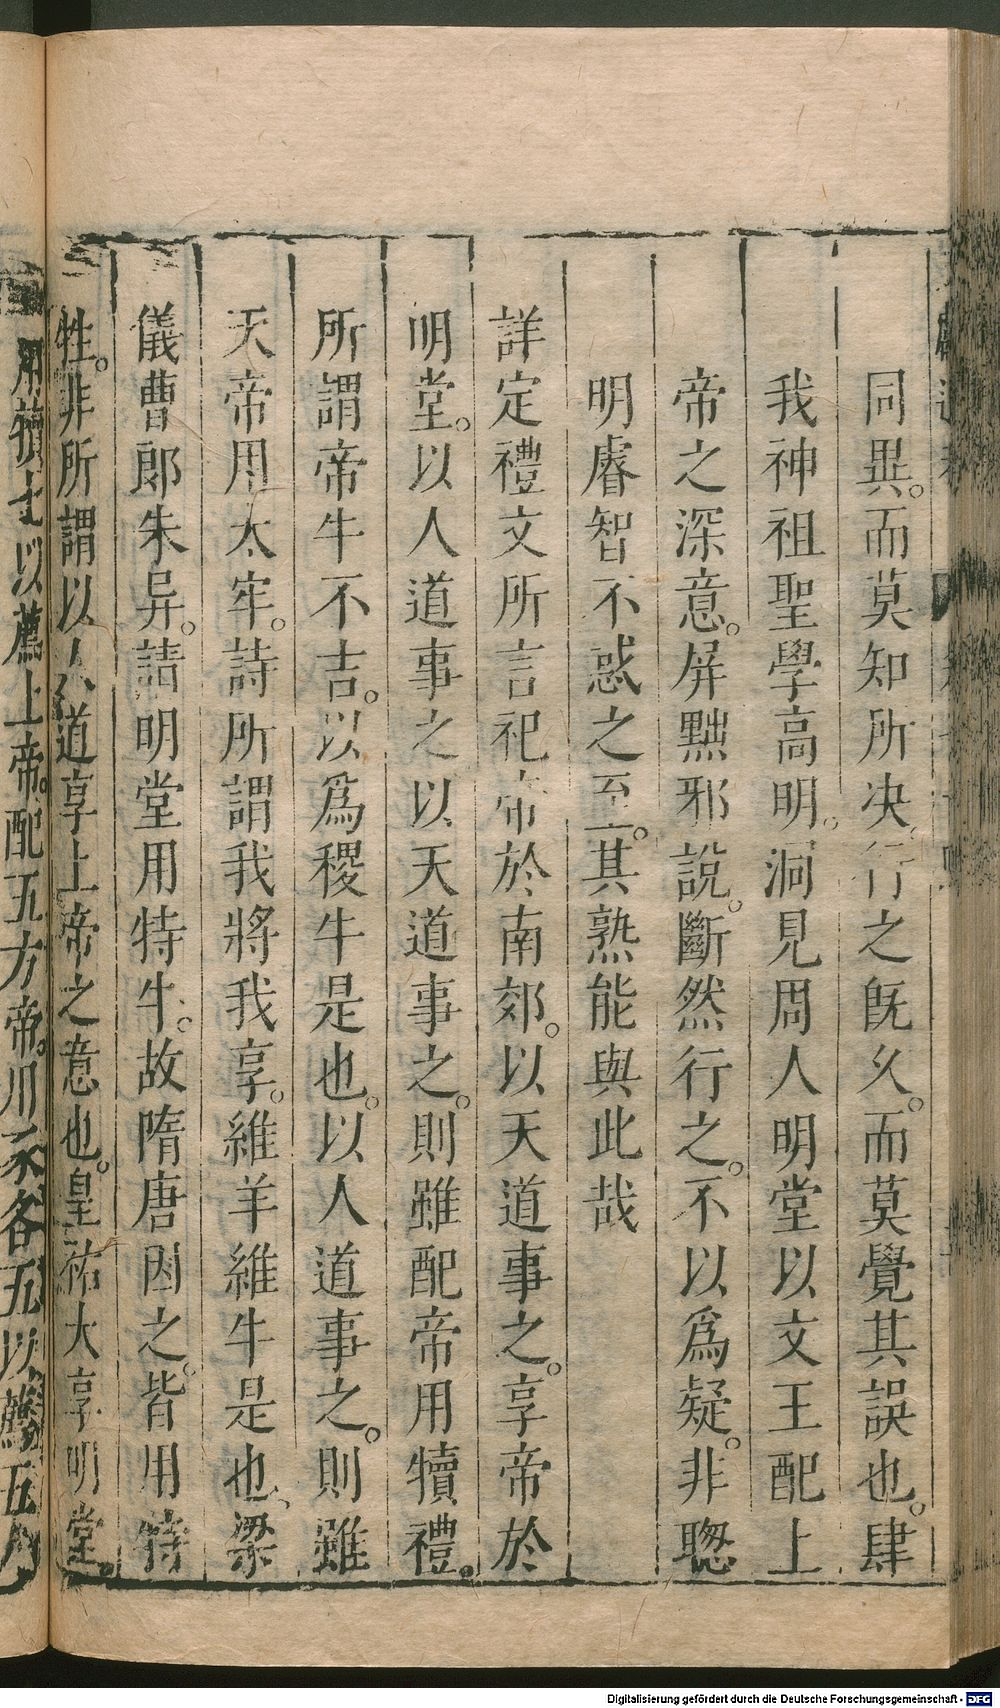 同異。而莫知所決。行之旣久。而莫覺其誤也。肆
我神祖聖學高明。洞見周人明堂以文王配上
帝之深意。屏黜邪說。斷然行之。不以爲疑。非聰
明睿智不惑之至。其熟能與此哉
詳定禮文所言祀帝於南郊。以天道事之。享帝於
明堂。以人道事之以天道事之。則雖配帝用犢禮。
所謂帝牛不吉。以爲稷牛是也。以人道事之。則雖
天帝用太牢。詩所謂我將我享。維羊維牛是也。梁
儀曹郎朱异。請明堂用特牛。故隋唐因之。皆用特
牲。非所謂以人道享上帝之意也。皇祐大享明堂。
用犢七以薦上帝。配五方帝。用豕各五以薦五
Digitalisierung gefördert durch die Deutsche Forschungsgemeinschaft - DFG